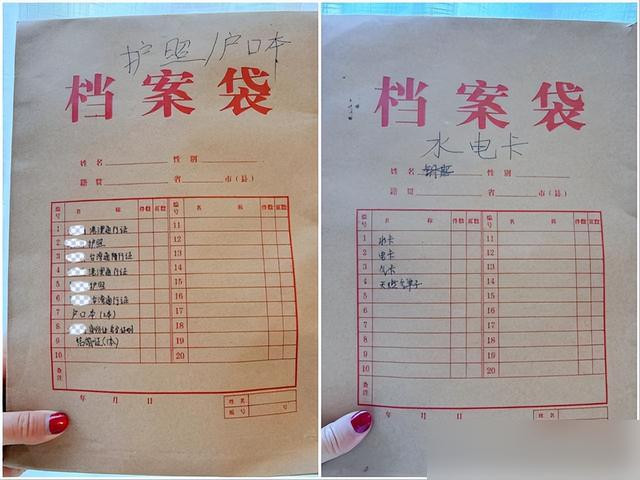 护照/户口本
档案袋
姓名 性别
籍贯 省 市(县)
编号 名称 件数 页数 编号 名称 件数 页数
1 港澳通行证 11
2 护照 12
3 台湾通行证 13
4 港澳通行证 14
5 护照 15
6 台湾通行证 16
7 户口本(2本) 17
8 18
9 结婚证(1本) 19
10 20
备注
年 月 日
姓名
编号 号
档案袋
水电卡
姓名 性别
籍贯 省 市(县)
编号 名称 件数 页数 编号 名称 件数 页数
1 水卡 11
2 电卡 12
3 气卡 13
4 14
5 15
6 16
7 17
8 18
9 19
10 20
备注
年 月 日
姓名